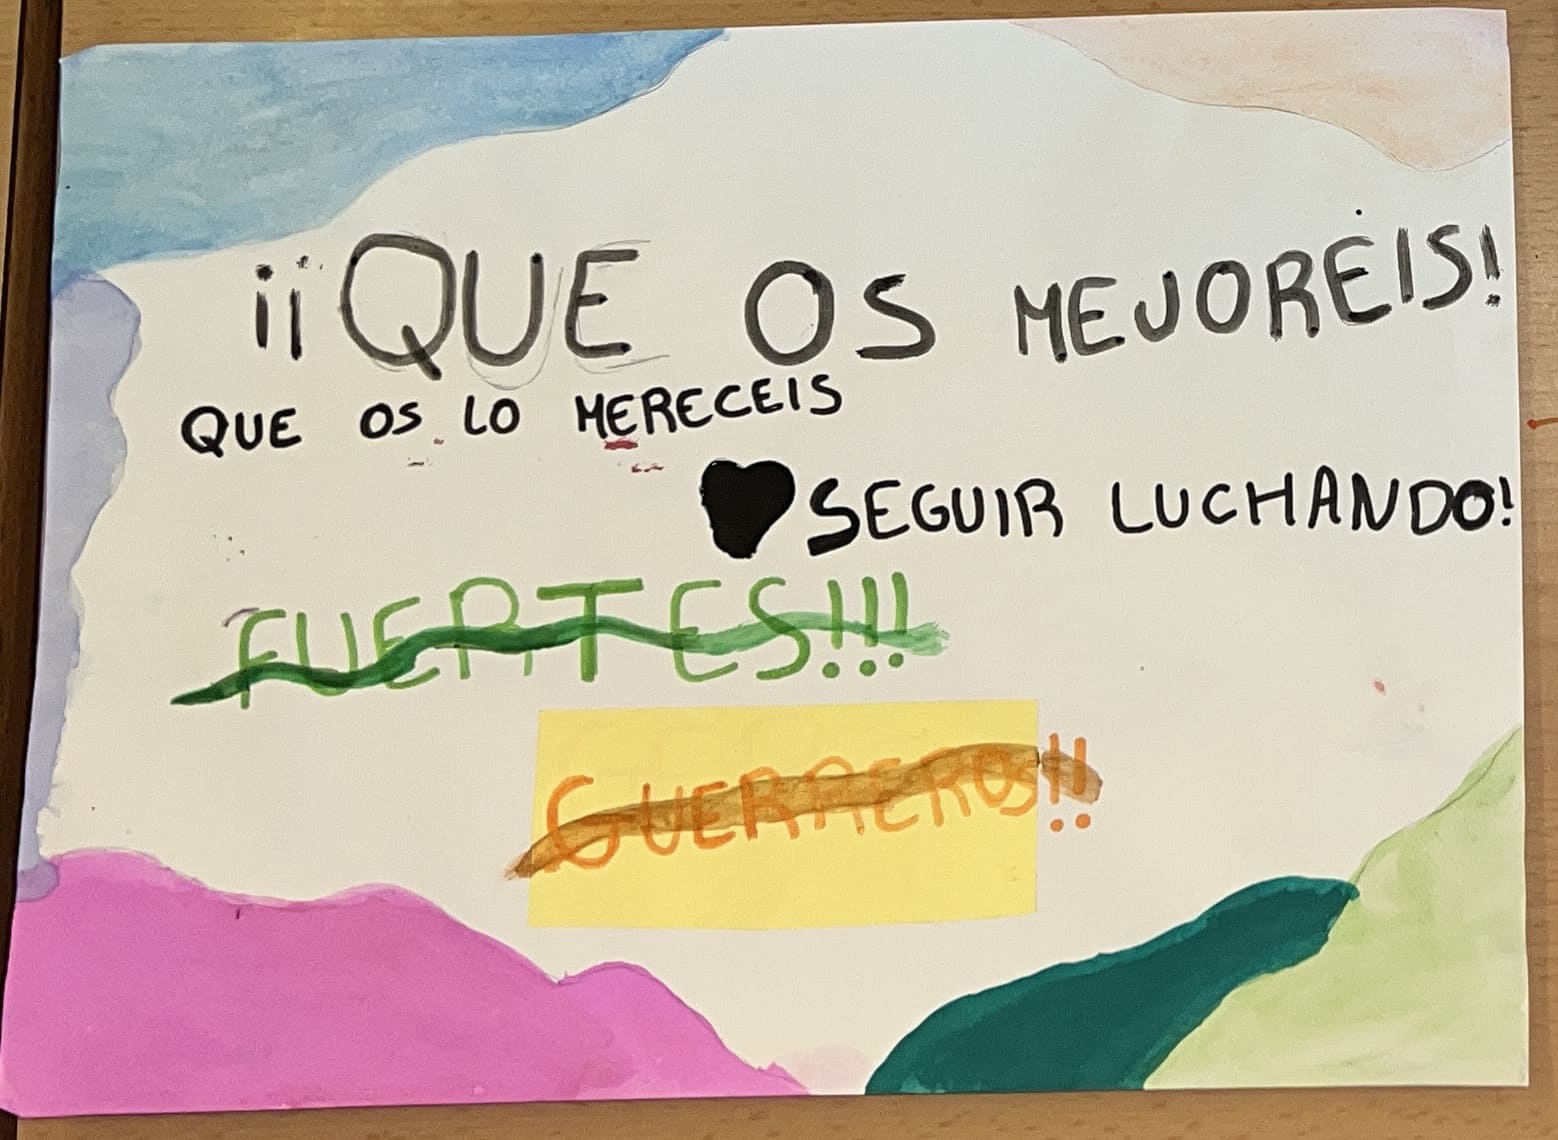 ¡¡QUE OS MEJOREIS!
QUE OS LO MERECEIS
SEGUIR LUCHANDO!
FUERTES!!!
GUERREROS!!